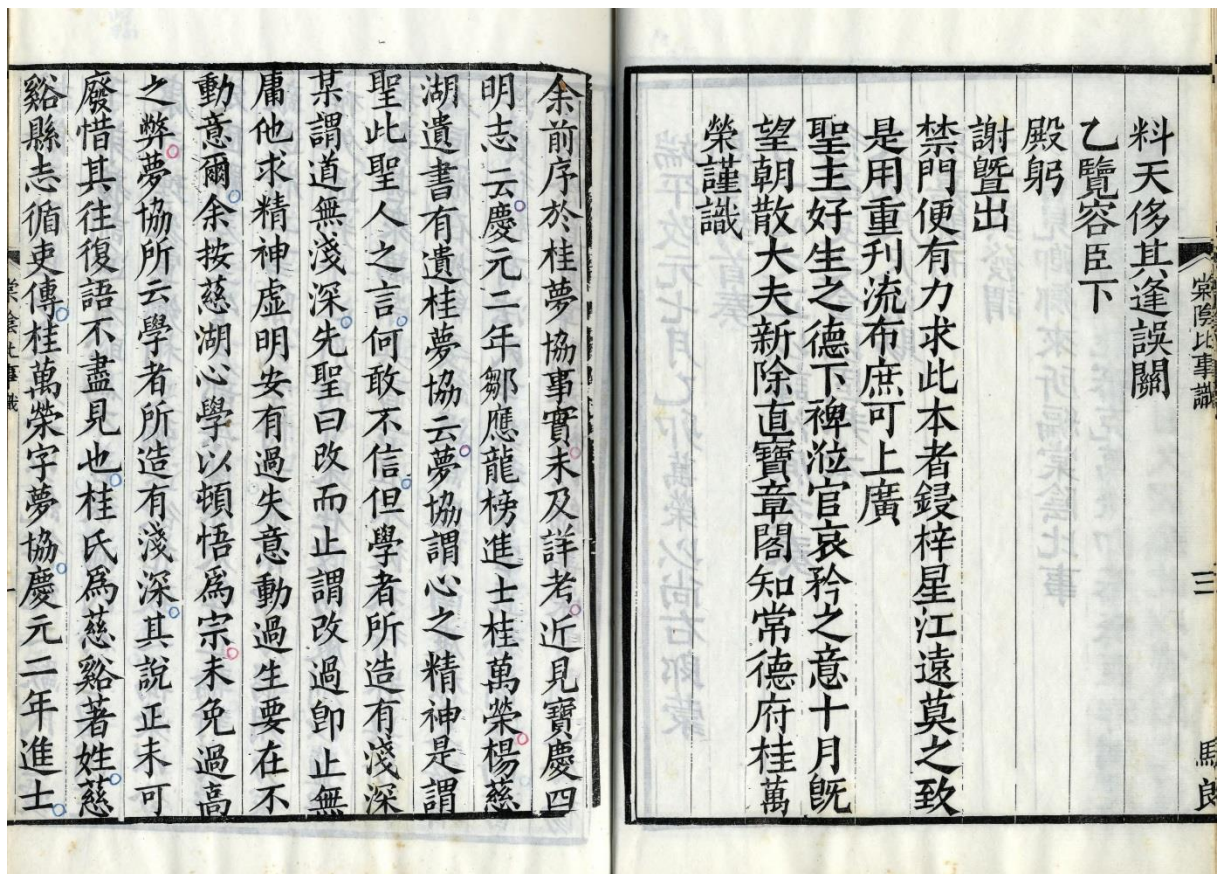 料天侈其逢誤關
乙覽容臣下
殿躬
謝曁出
禁門便有力求此本者鋟梓星江遠莫之致
是用重刊流布庶可上廣
聖主好生之德下裨涖官哀矜之意十月旣
望朝散大夫新除直寶章閣知常德府桂萬
榮謹識
棠陰比事識
三
余前序於桂夢協事實未及詳考近見寶慶四
明志云慶元二年鄒應龍榜進士桂萬榮楊慈
湖遺書有遺桂夢協云夢協謂心之精神是謂
聖此聖人之言何敢不信但學者所造有淺深
某謂道無淺深先聖曰改而止謂改過卽止無
庸他求精神虛明安有過失意動過生要在不
動意爾余按慈湖心學以頓悟爲宗未免過高
之弊夢協所云學者所造有淺深其說正未可
廢惜其往復語不盡見也桂氏爲慈谿著姓慈
谿縣志循吏傳桂萬榮字夢協慶元二年進士